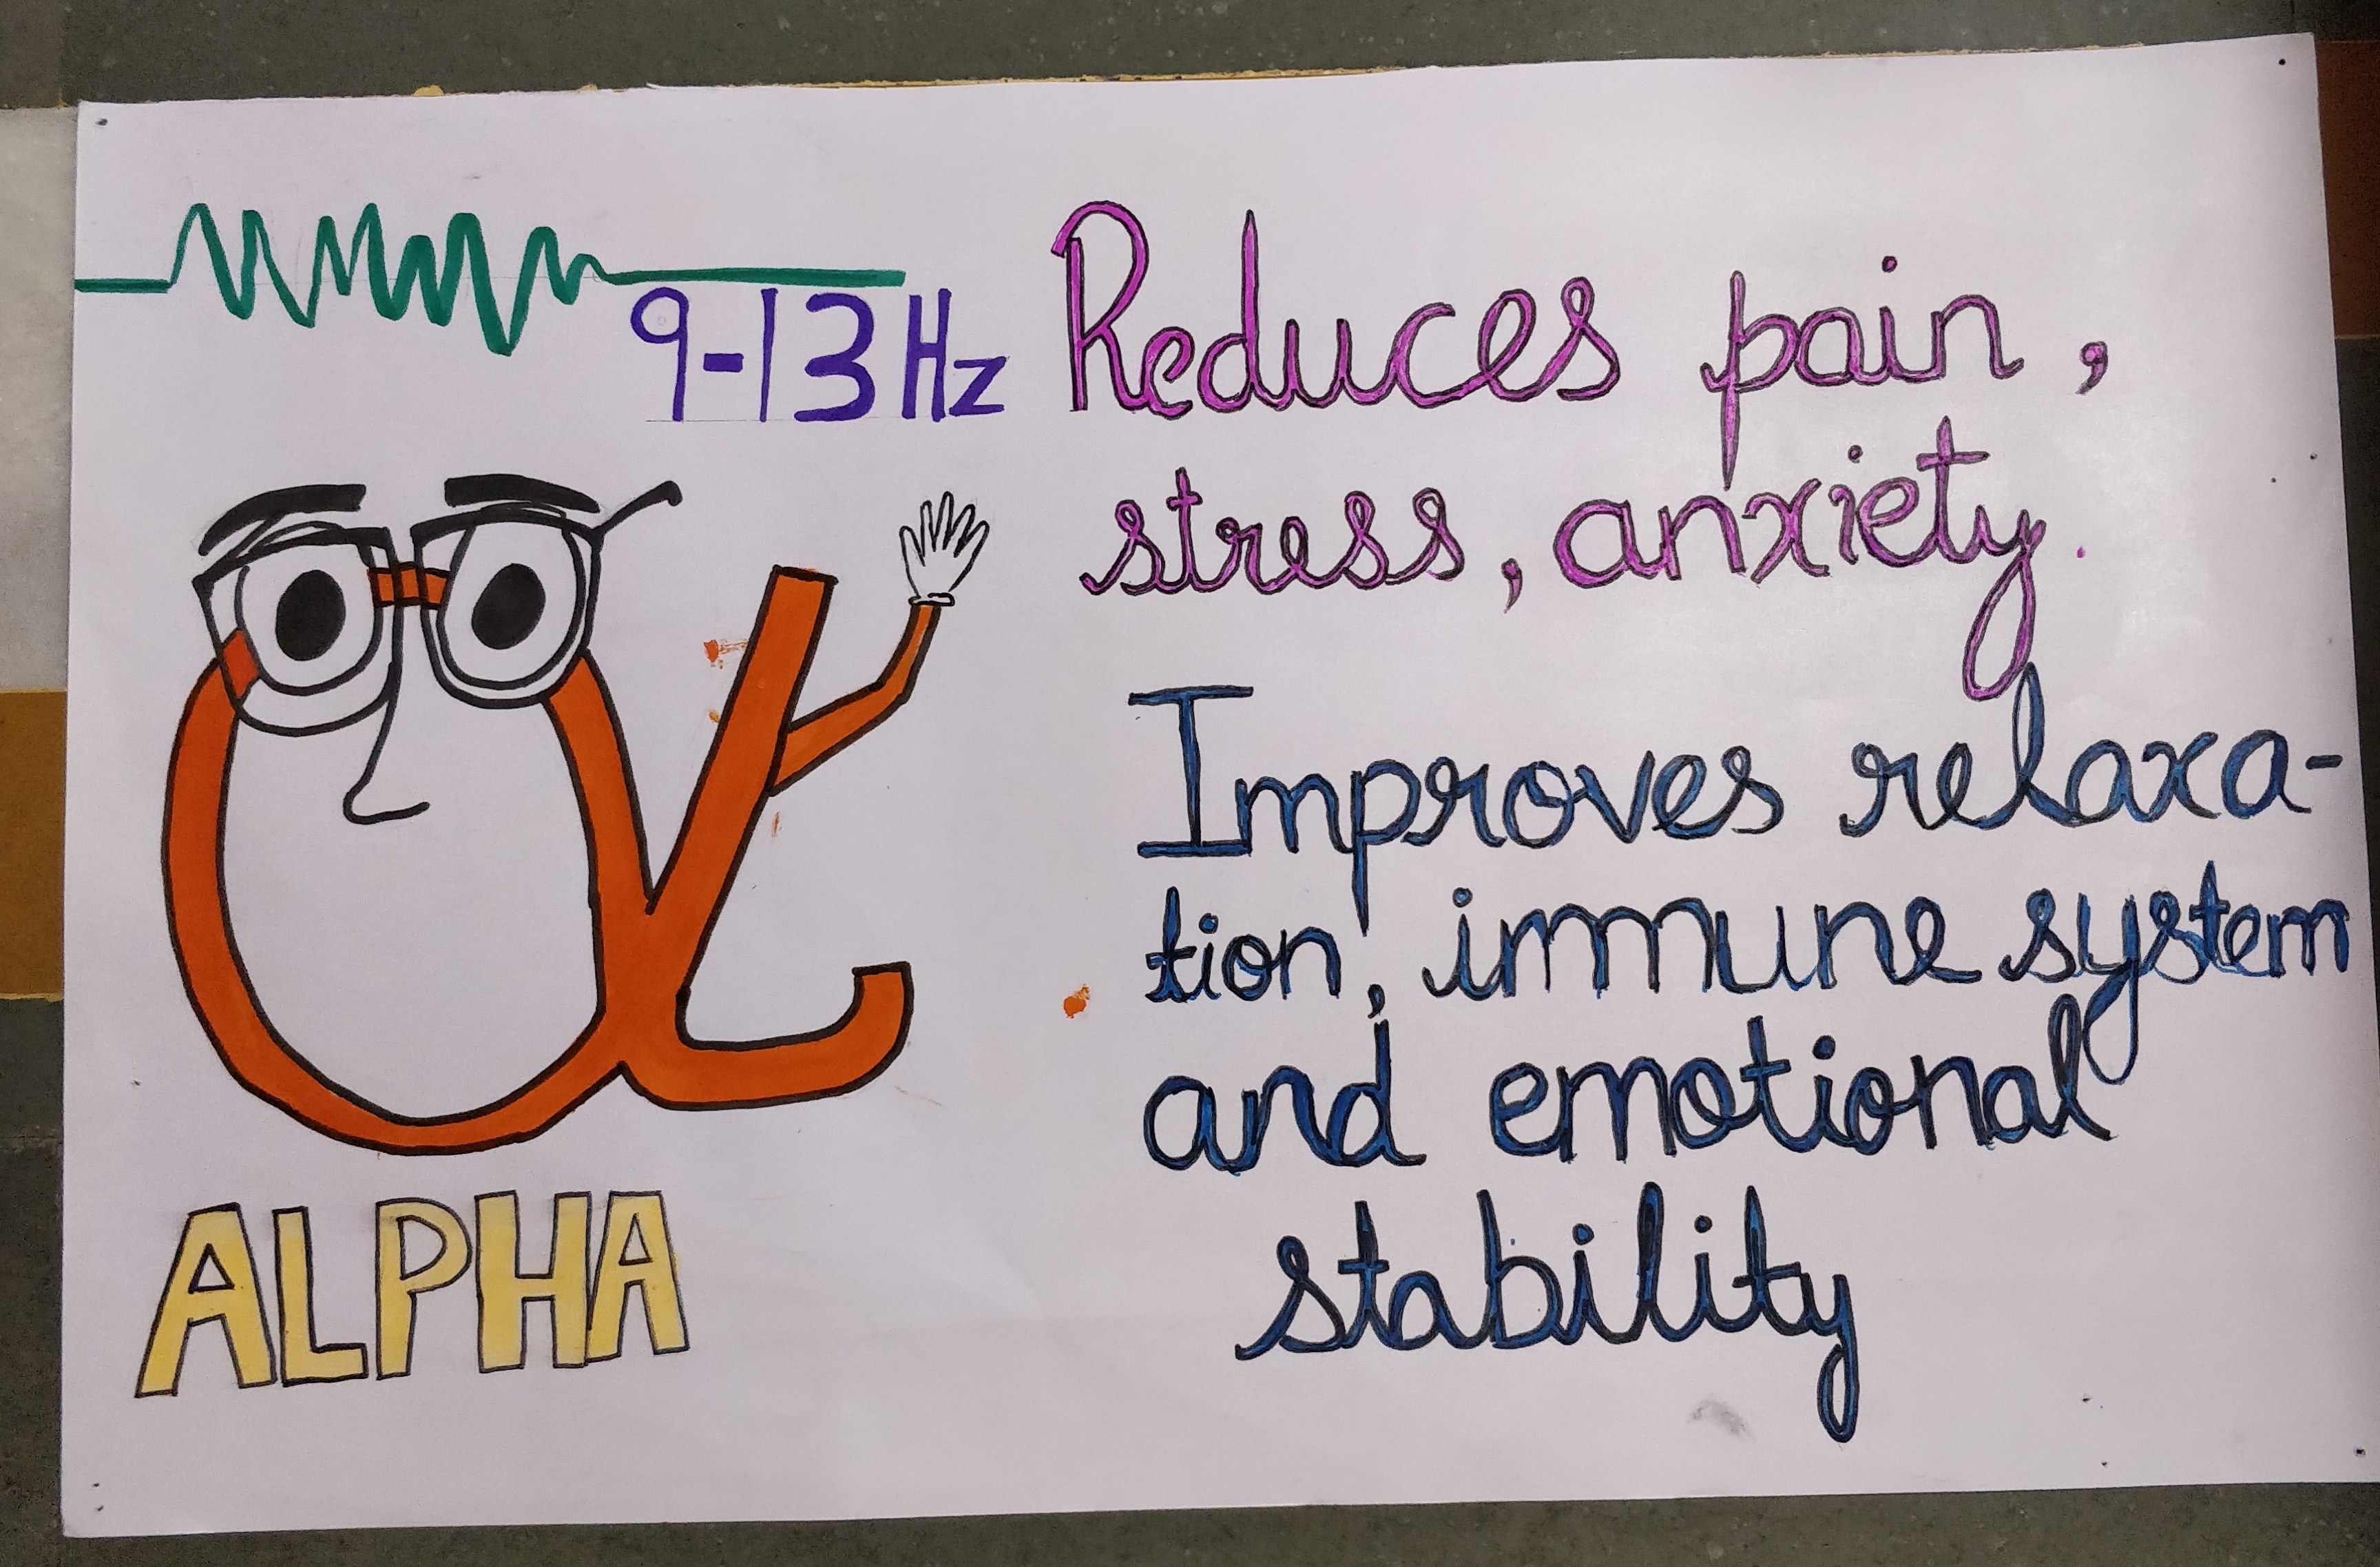 9-13 Hz
Reduces pain,
stress, anxiety.
Improves relaxa-
tion, immune system
and emotional
stability
ALPHA